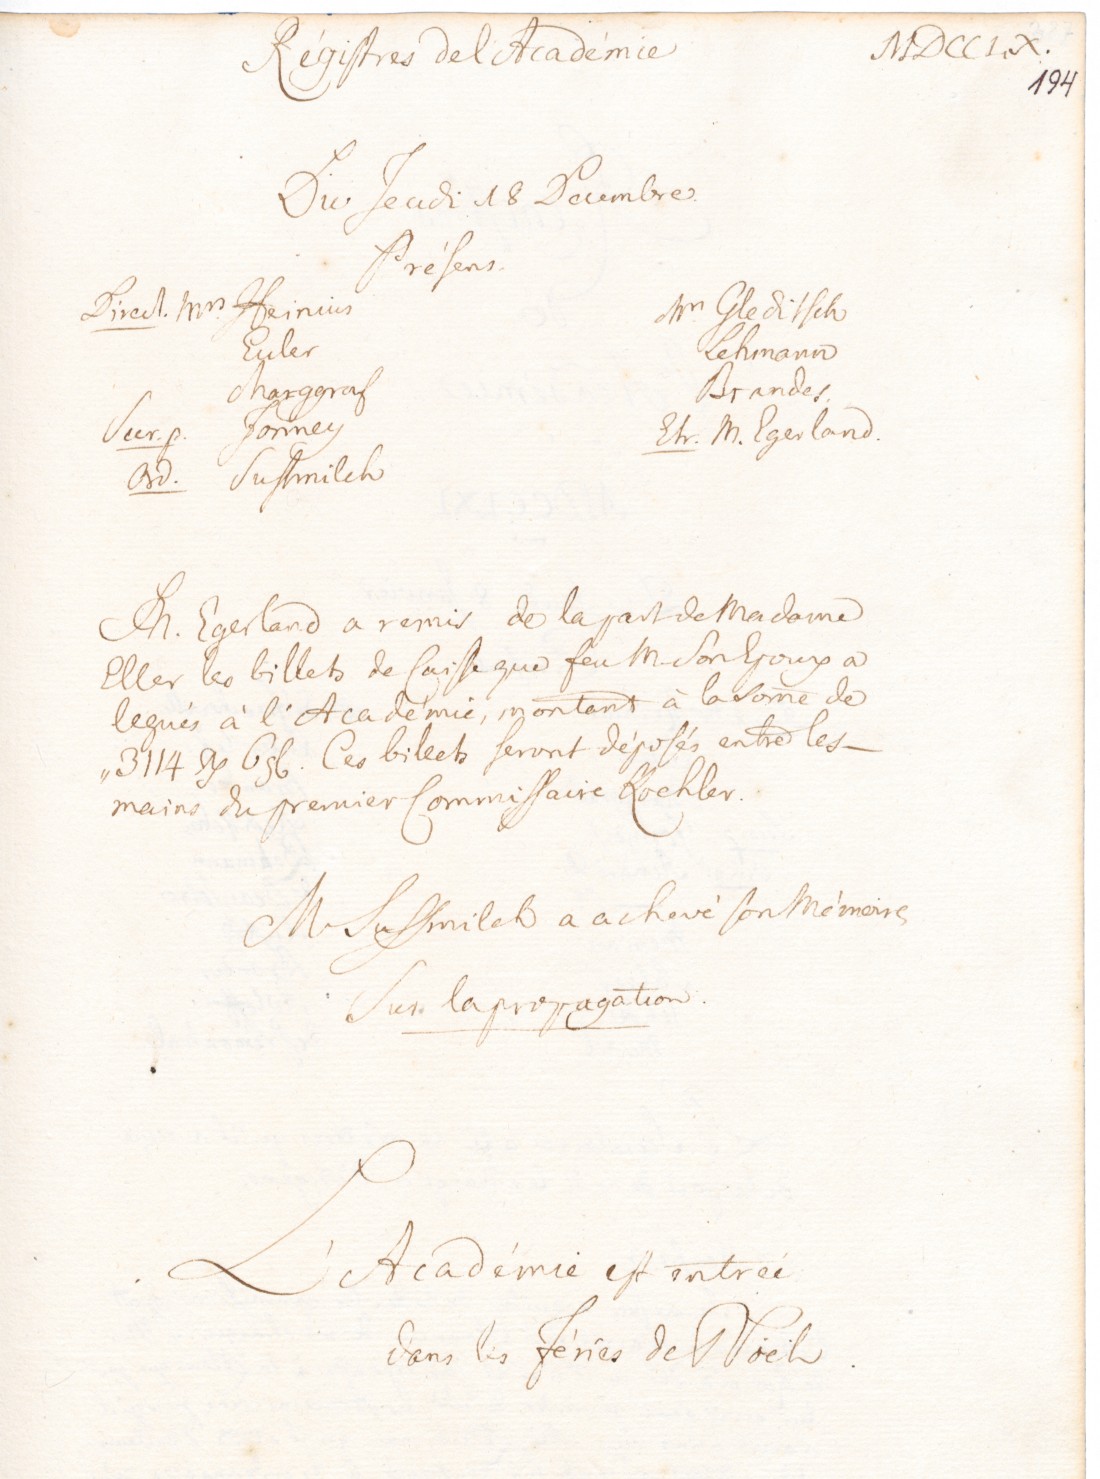 Régistres de l'Académie MDCCLX.
194
Du Jeudi 18 Decembre.
Présens.
Direct. Mrs. Heinius
Euler
Marggraf
Secr. p. Formey
Ord. Sussmilch
Mrs Gleditsch
Lehmann
Brandes.
Etr. M. Egerland.
M. Egerland a remis de la part de Madame
Eller les billets de Caisse que feu M. Son Epoux a
legués à l'Académie, montant à la some de
3114 Ces billets seront déposés entre les
mains du premier Commissaire Koehler.
M. Sussmilch a achevé son Mémoire
Sur la propagation.
L'Académie est entrée
dans les Féries de Noël.